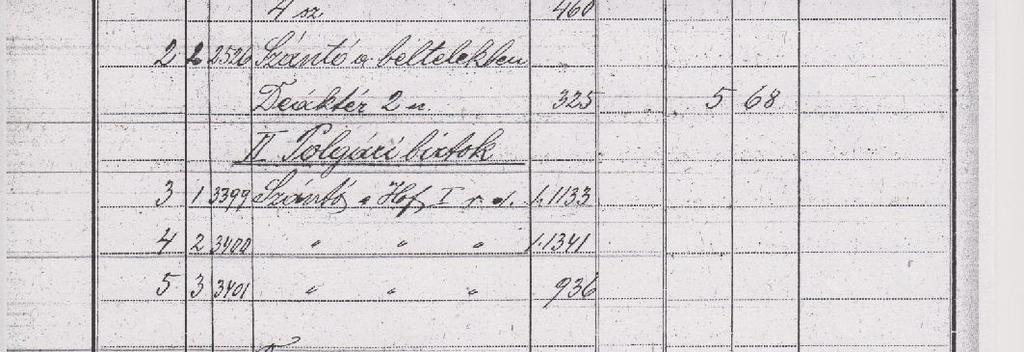 4 sz 460
2 2 2526 Szántó a beltelekben
Deáktér 2 sz. 325 5 68
II Polgári birtok
3 1 3399 Szántó a Hof I r d. 1.1133
4 2 3400 " " " 1.1341
5 3 3401 " " " 936